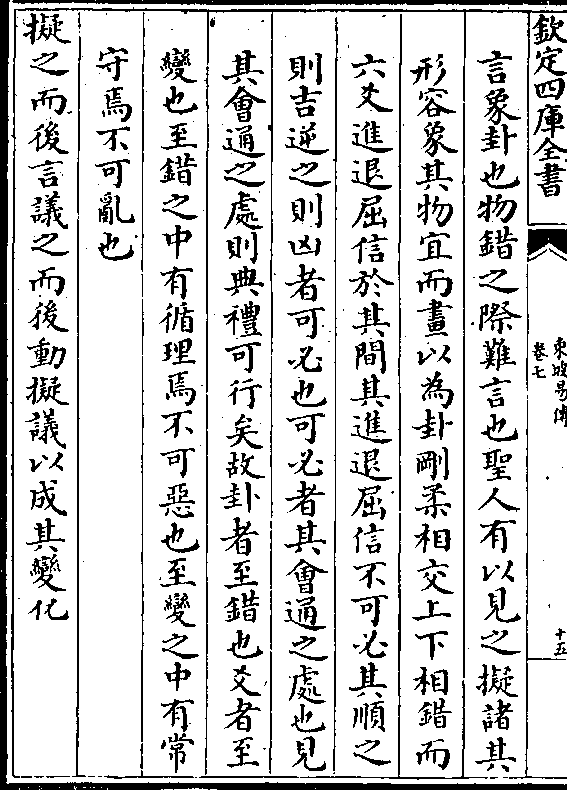 欽定四庫全書
東坡易傳
卷七
十五
言象卦也物錯之際難言也聖人有以見之擬諸其
形容象其物宜而畫以為卦剛柔相交上下相錯而
六爻進退屈信於其間其進退屈信不可必其順之
則吉逆之則凶者可必也可必者其會通之處也見
其會通之處則典禮可行矣故卦者至錯也爻者至
變也至錯之中有循理焉不可惡也至變之中有常
守焉不可亂也
擬之而後言議之而後動擬議以成其變化